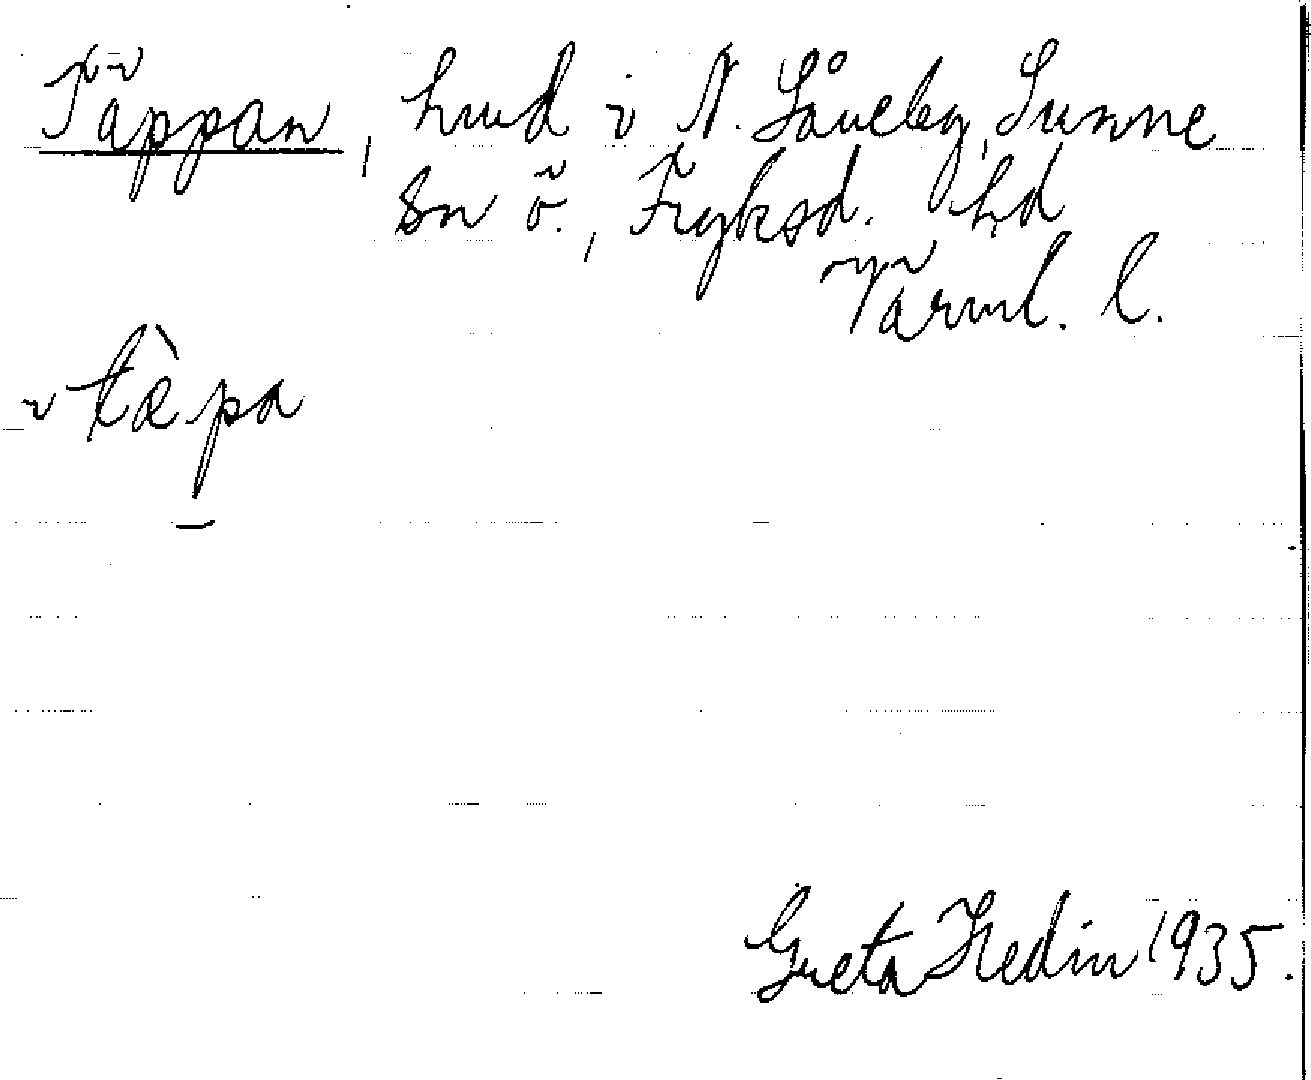 Täppan, hmd i N. Såneby, Sunne
Sn ö., Fryksd. hd
Värml. l.
tæ̀pa
Greta Hedin 1935.